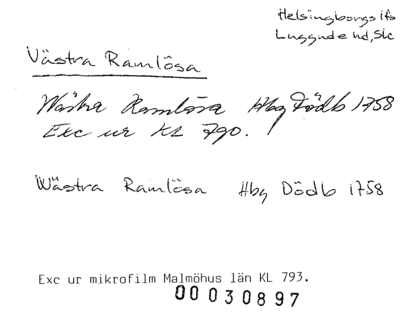 Helsingborgs lfs
Luggude hd, Skc
Västra Ramlösa
Wästra Ramlösa Hbg Dödb 1758
Exc ur KL 790.
Wästra Ramlösa Hbg Dödb 1758
Exc ur mikrofilm Malmöhus län KL 793.
00030897